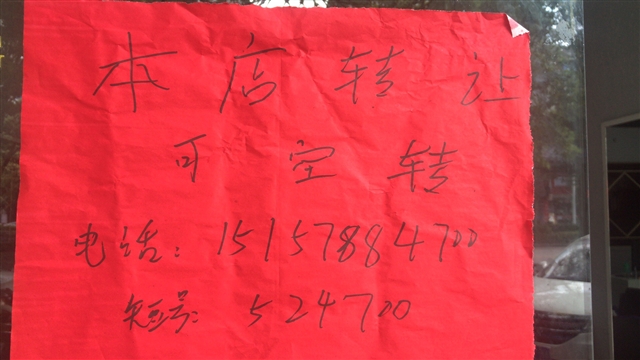 本店转让
可空转
电话：15157884700
短号：524700